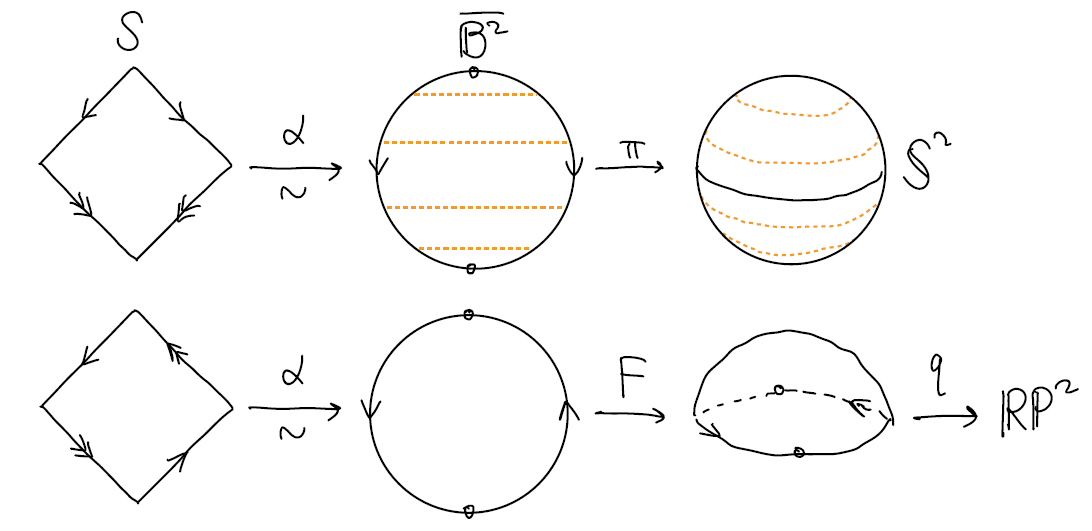 S
α
~
B²
π
S²
α
~
F
q
RP²